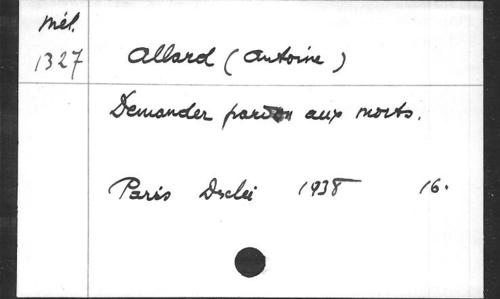 Mél.
1327 Allard (Antoine)
Demander pardon aux morts.
Paris Desclée 1938 16.